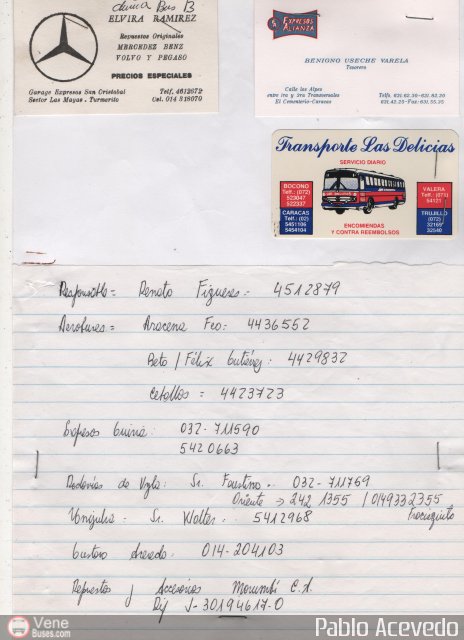 ELVIRA RAMIREZ
Repuestos Originales
MERCEDEZ BENZ
VOLVO Y PEGASO
PRECIOS ESPECIALES
Garage Expresos San Cristobal
Telf. 4612672
Sector Las Mayas . Turmerito
Cel. 014 318070
EXPRESOS
ALIANZA
BENIGNO USECHE VARELA
Tesorero
Calle los Alpes
entre 1ra y 2ra Transversales
El Cementerio-Caracas
Telfs. 631.62.30 - 631.82.20
631.42.25 - Fax:631.55.35
Transporte Las Delicias
SERVICIO DIARIO
BOCONO
Telf.: (072)
523047
522337
CARACAS
Telf.: (02)
5451106
5454104
VALERA
Telf.: (071)
54121
TRUJILLO
(072)
32169
32540
ENCOMIENDAS
Y CONTRA REEMBOLSOS
Responsible = Renato Figueres = 4512879
Aerobuses = Aracena Fco: 4436552
Beto / Félix Gutérrez: 4429832
Ceballos = 4423723
Expresos Guaria: 032-711590
5420663
Rodovias de Vzla: Sr. Faustino.. 032-711769
Oriente → 242 1355 / 0149332355
Sr. Walter.. 5412968
Gustavo Acevedo. 014-204103
Repuestos y Accesorios Morumbí C.A.
Rif J-30194617-0
Vene
Buses.com
Pablo Acevedo